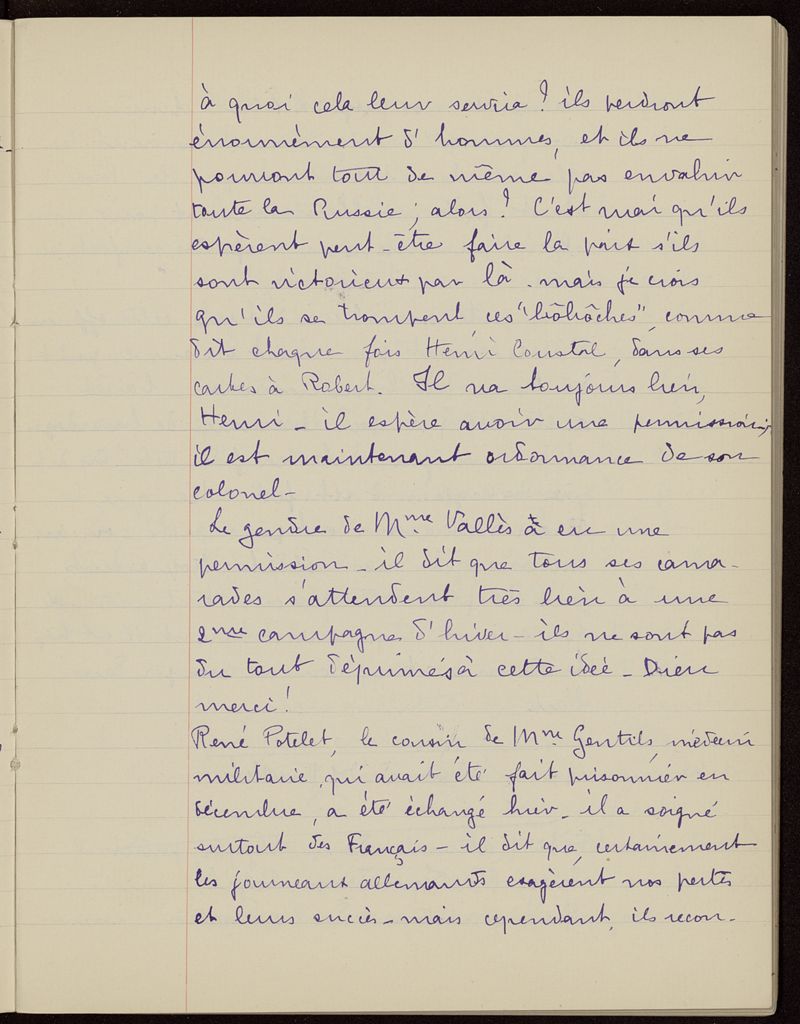 à quoi cela leur servira ? ils perdront
énormément d'hommes, et ils ne
pourront tout de même pas envahir
toute la Russie ; alors ? C'est vrai qu'ils
espèrent peut-être faire la paix s'ils
sont victorieux par là. mais je crois
qu'ils se trompent, ces "bôbôches", comme
dit chaque fois Henri Coustol, dans ses
cartes à Robert. Il va toujours bien,
Henri _ il espère avoir une permission,
il est maintenant ordonnance de son
colonel _
Le gendre de Mme Vallès a eu une
permission _ il dit que tous ses cama-
rades s'attendent très bien à une
2me campagne d'hiver _ ils ne sont pas
du tout déprimés à cette idée _ Dieu
merci !
René Potelet, le cousin de Mme Gentils, médecin
militaire, qui avait été fait prisonnier en
décembre, a été échangé hier _ il a soigné
surtout des Français _ il dit que, certainement
les journaux allemands exagèrent nos pertes
et leurs succès _ mais cependant, ils recon-